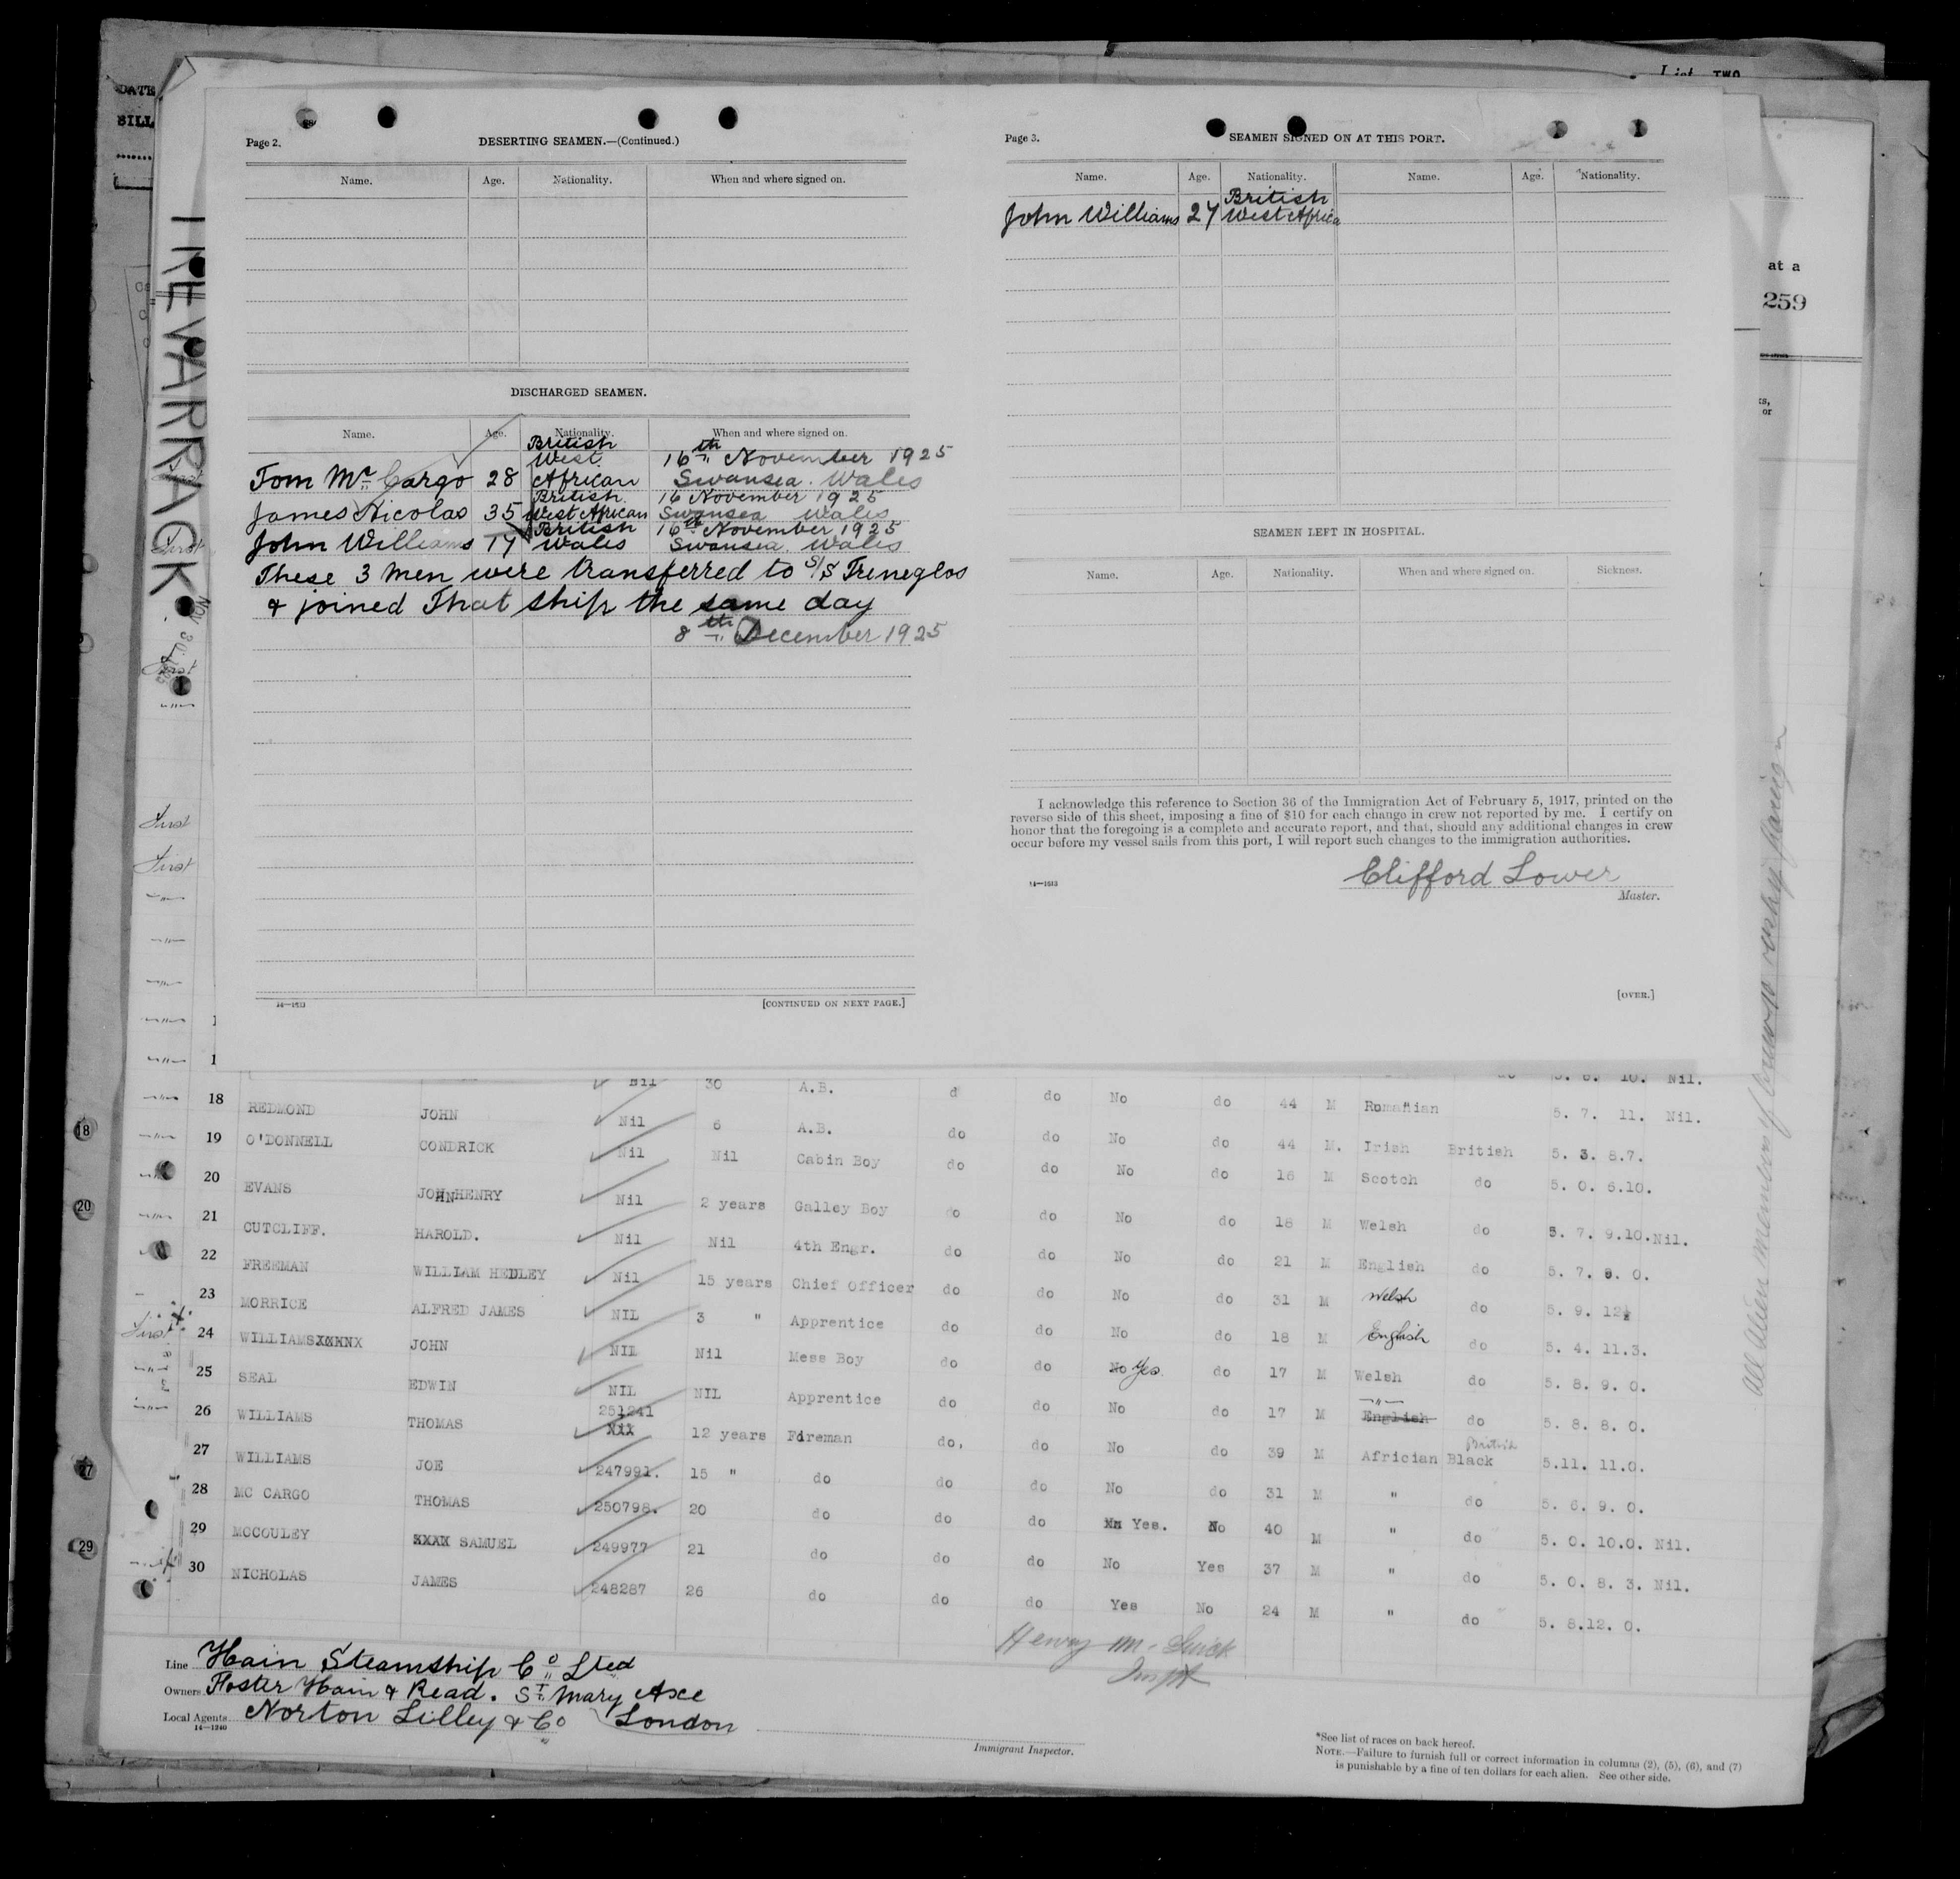 DATE
List TWO
at a
259
TREVARRACK
NOV 30 1925
Page 2.
DESERTING SEAMEN.—(Continued.)
Name. Age. Nationality. When and where signed on.
DISCHARGED SEAMEN.
Name. Age. Nationality. When and where signed on.
Tom Mc Cargo 28 British West African 16th November 1925 Swansea. Wales
James Nicolas 35 British West African 16 November 1925 Swansea Wales
John Williams 17 British Wales 16th November 1925 Swansea. Wales
These 3 men were transferred to S/S Treneglos
& joined That ship the same day
8th December 1925
14—1513
[CONTINUED ON NEXT PAGE.]
Page 3.
SEAMEN SIGNED ON AT THIS PORT.
Name. Age. Nationality. Name. Age. Nationality.
John Williams 27 British West Africa
SEAMEN LEFT IN HOSPITAL.
Name. Age. Nationality. When and where signed on. Sickness.
I acknowledge this reference to Section 36 of the Immigration Act of February 5, 1917, printed on the
reverse side of this sheet, imposing a fine of $10 for each change in crew not reported by me. I certify on
honor that the foregoing is a complete and accurate report, and that, should any additional changes in crew
occur before my vessel sails from this port, I will report such changes to the immigration authorities.
Clifford Lower
Master.
14—1513
[OVER.]
Nil 30 A.B. d do No do 44 M Romanian 5. 7. 11. Nil.
18 REDMOND JOHN Nil 6 A.B. do do No do 44 M. Irish British 5. 3. 8.7.
19 O'DONNELL CONDRICK Nil Nil Cabin Boy do do No do 16 M Scotch do 5. 0. 6.10.
20 EVANS JOHN HENRY Nil 2 years Galley Boy do do No do 18 M Welsh do 5. 7. 9.10. Nil.
21 CUTCLIFF. HAROLD. Nil Nil 4th Engr. do do No do 21 M English do 5. 7. 8. 0.
22 FREEMAN WILLIAM HEDLEY Nil 15 years Chief Officer do do No do 31 M Welsh do 5. 9. 12
23 MORRICE ALFRED JAMES NIL 3 " Apprentice do do No do 18 M English do 5. 4. 11.3.
24 WILLIAMS JOHN NIL Nil Mess Boy do do No Yes. do 17 M Welsh do 5. 8. 9. 0.
25 SEAL EDWIN NIL NIL Apprentice do do No do 17 M —"— English do 5. 8. 8. 0.
26 WILLIAMS THOMAS 251241 Nil 12 years Fireman do. do No do 39 M Africian Black British 5.11. 11.0.
27 WILLIAMS JOE 247991. 15 " do do do No do 31 M " do 5. 6. 9. 0.
28 MC CARGO THOMAS 250798. 20 do do do Yes. No 40 M " do 5. 0. 10.0. Nil.
29 MCCOULEY SAMUEL 249977 21 do do do No Yes 37 M " do 5. 0. 8. 3. Nil.
30 NICHOLAS JAMES 248287 26 do do do Yes No 24 M " do 5. 8.12. 0.
First
First
First
18
20
27
29
Line Hain Steamship Co Lted
Owners Foster Hain & Read. St. Mary Axe
Local Agents Norton Lilley & Co London
14—1240
Immigrant Inspector.
*See list of races on back hereof.
NOTE.—Failure to furnish full or correct information in columns (2), (5), (6), and (7)
is punishable by a fine of ten dollars for each alien. See other side.